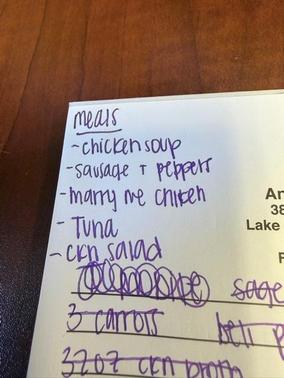 meals
- chicken soup
- sausage + peppers
- marry me chicken
- Tuna
- ckn salad
An
38
Lake
F
sage
3 carrots bell p
32oz ckn broth